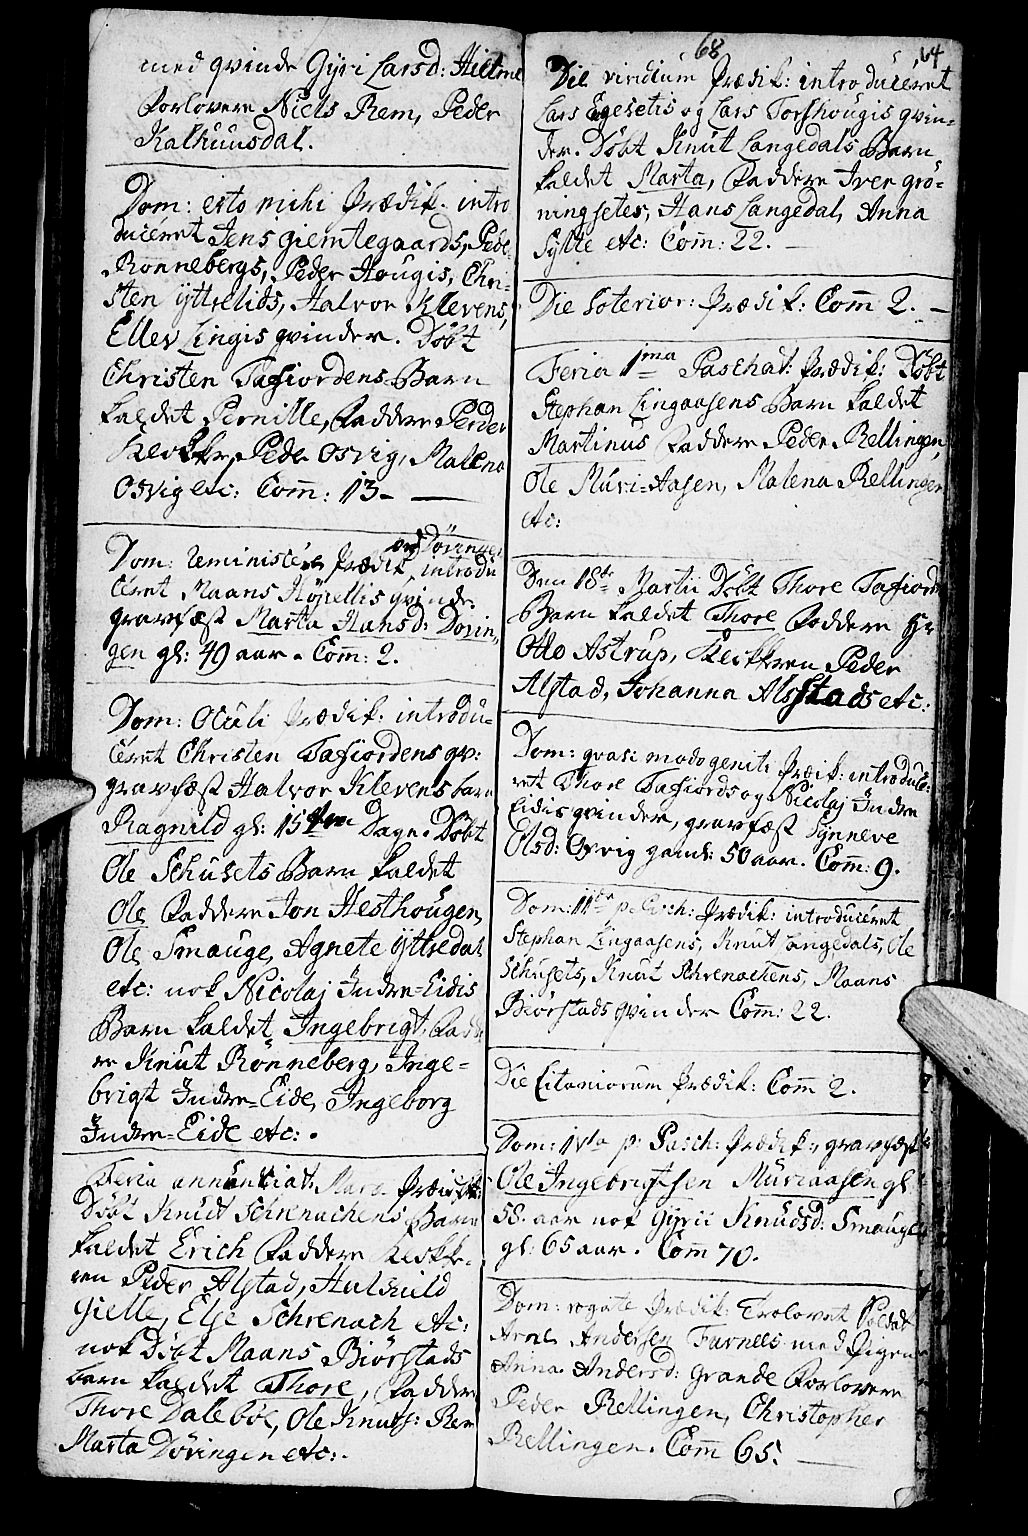 med qvinde Gyri Larsd: Hielme
Forlovere Niels Rem, Peder
Kalhuusdal.
Dom: esto mihi Prædik: intro
duceret Jens Giemtegaards, Peder
Rønnebergs, Peder Hougis, Chri-
sten Yttrelids, Halvor Klevens,
Ellev Lingis qvinder. Døbt
Christen Tafiordens Barn
kaldet Pernille, Faddere Peder
Klokker, Peder Osvig, Malena
Osvig etc: Com: 13 -
Dom: reminiscere Prædik: og Døringen introdu
ceret Maans Høyellis qvinde.
gravfæst Marta Hansd: Dørin-
gen gl: 49 aar. Com: 2.
Dom: Oculi Prædik: introdu-
ceret Christen Tafiordens qv:
gravfæst Halvor Klevens barn
Ragnild gl: 15 Dage. Døbt
Ole Schusets Barn kaldet
Ole Faddere Jon Hesthougen,
Ole Smauge, Agnete Yttredal
etc: nok Nicolaj Indre-Eidis
Barn kaldet Ingebrigt, Fadde
re Knut Rønneberg, Inge-
brigt Indre-Eide, Ingeborg
Indre-Eide etc: .
Feria annuntiat: Mariæ Prædik:
Døbt Knud Schrenachens Barn
kaldet Erich Faddere Klokke-
ren Peder Alstad, Hulhuld
Gielle, Else Schrenach etc:
nok Døbt Maans Biørstads
barn kaldet Thore, Faddere
Thore Dalebøe, Ole Knuts: Rem
Marta Døringen etc: .
68
64
Die viridium Prædik: introduceret
Lars Egesetis og Lars Torshougis qvin-
der. Døbt Knut Langedals Barn
kaldet Marta, Faddere Iver Grø-
ningsetes, Hans Langedal, Anna
Sylte etc: Com: 22. -
Die Soterior: Prædik: Com 2. -
Feria 1ma Paschat: Prædik: Døbt
Stephan Lingaasens Barn kaldet
Martinus Faddere Peder Rellingen,
Ole Muri-Aasen, Malena Rellingen
etc:
Den 18te Martii Døbt Thore Tafiords
Barn kaldet Thore Faddere Hr
Otto Astrup, Klokkren Peder
Alstad, Johanna Alstads etc:
Dom: qvasi modogeniti Prædik: introduce-
ret Thore Tafiords og Nicolaj Indre
Eidis qvinder, gravfæst Synneve
Olsd: Osvig gaml: 50 aar. Com: 9.
Dom: IIda p. Pasch: Prædik: introduceret
Stephan Lingaasens, Knut Langedals, Ole
Schusets, Knut Schrenachens, Maans
Biørstads qvinder Com: 22.
Die Litaniorum Prædik: Com 2.
Dom: IVta p: Pasch: Prædik: gravfæst
Ole Ingebrigtsen Muriaasen gl
58. aar nok Gyrii Knudsd: Smauge
gl: 65 aar. Com 70.
Dom: rogate Prædik: Trolovet Soldat
Arne Andersen Furnees med Pigen
Anna Andersd: Grande Forlovere
Peder Rellingen, Christopher
Rellingen. Com 65.